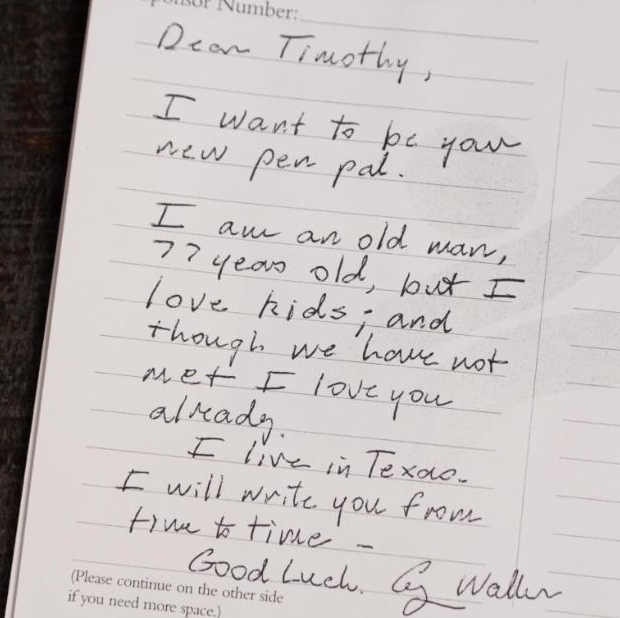 Sponsor Number:
Dear Timothy,
I want to be your
new pen pal.
I am an old man,
77 years old, but I
love kids; and
though we have not
met I love you
already.
I live in Texas.
I will write you from
time to time –
Good Luck. G. Walker
(Please continue on the other side
if you need more space.)